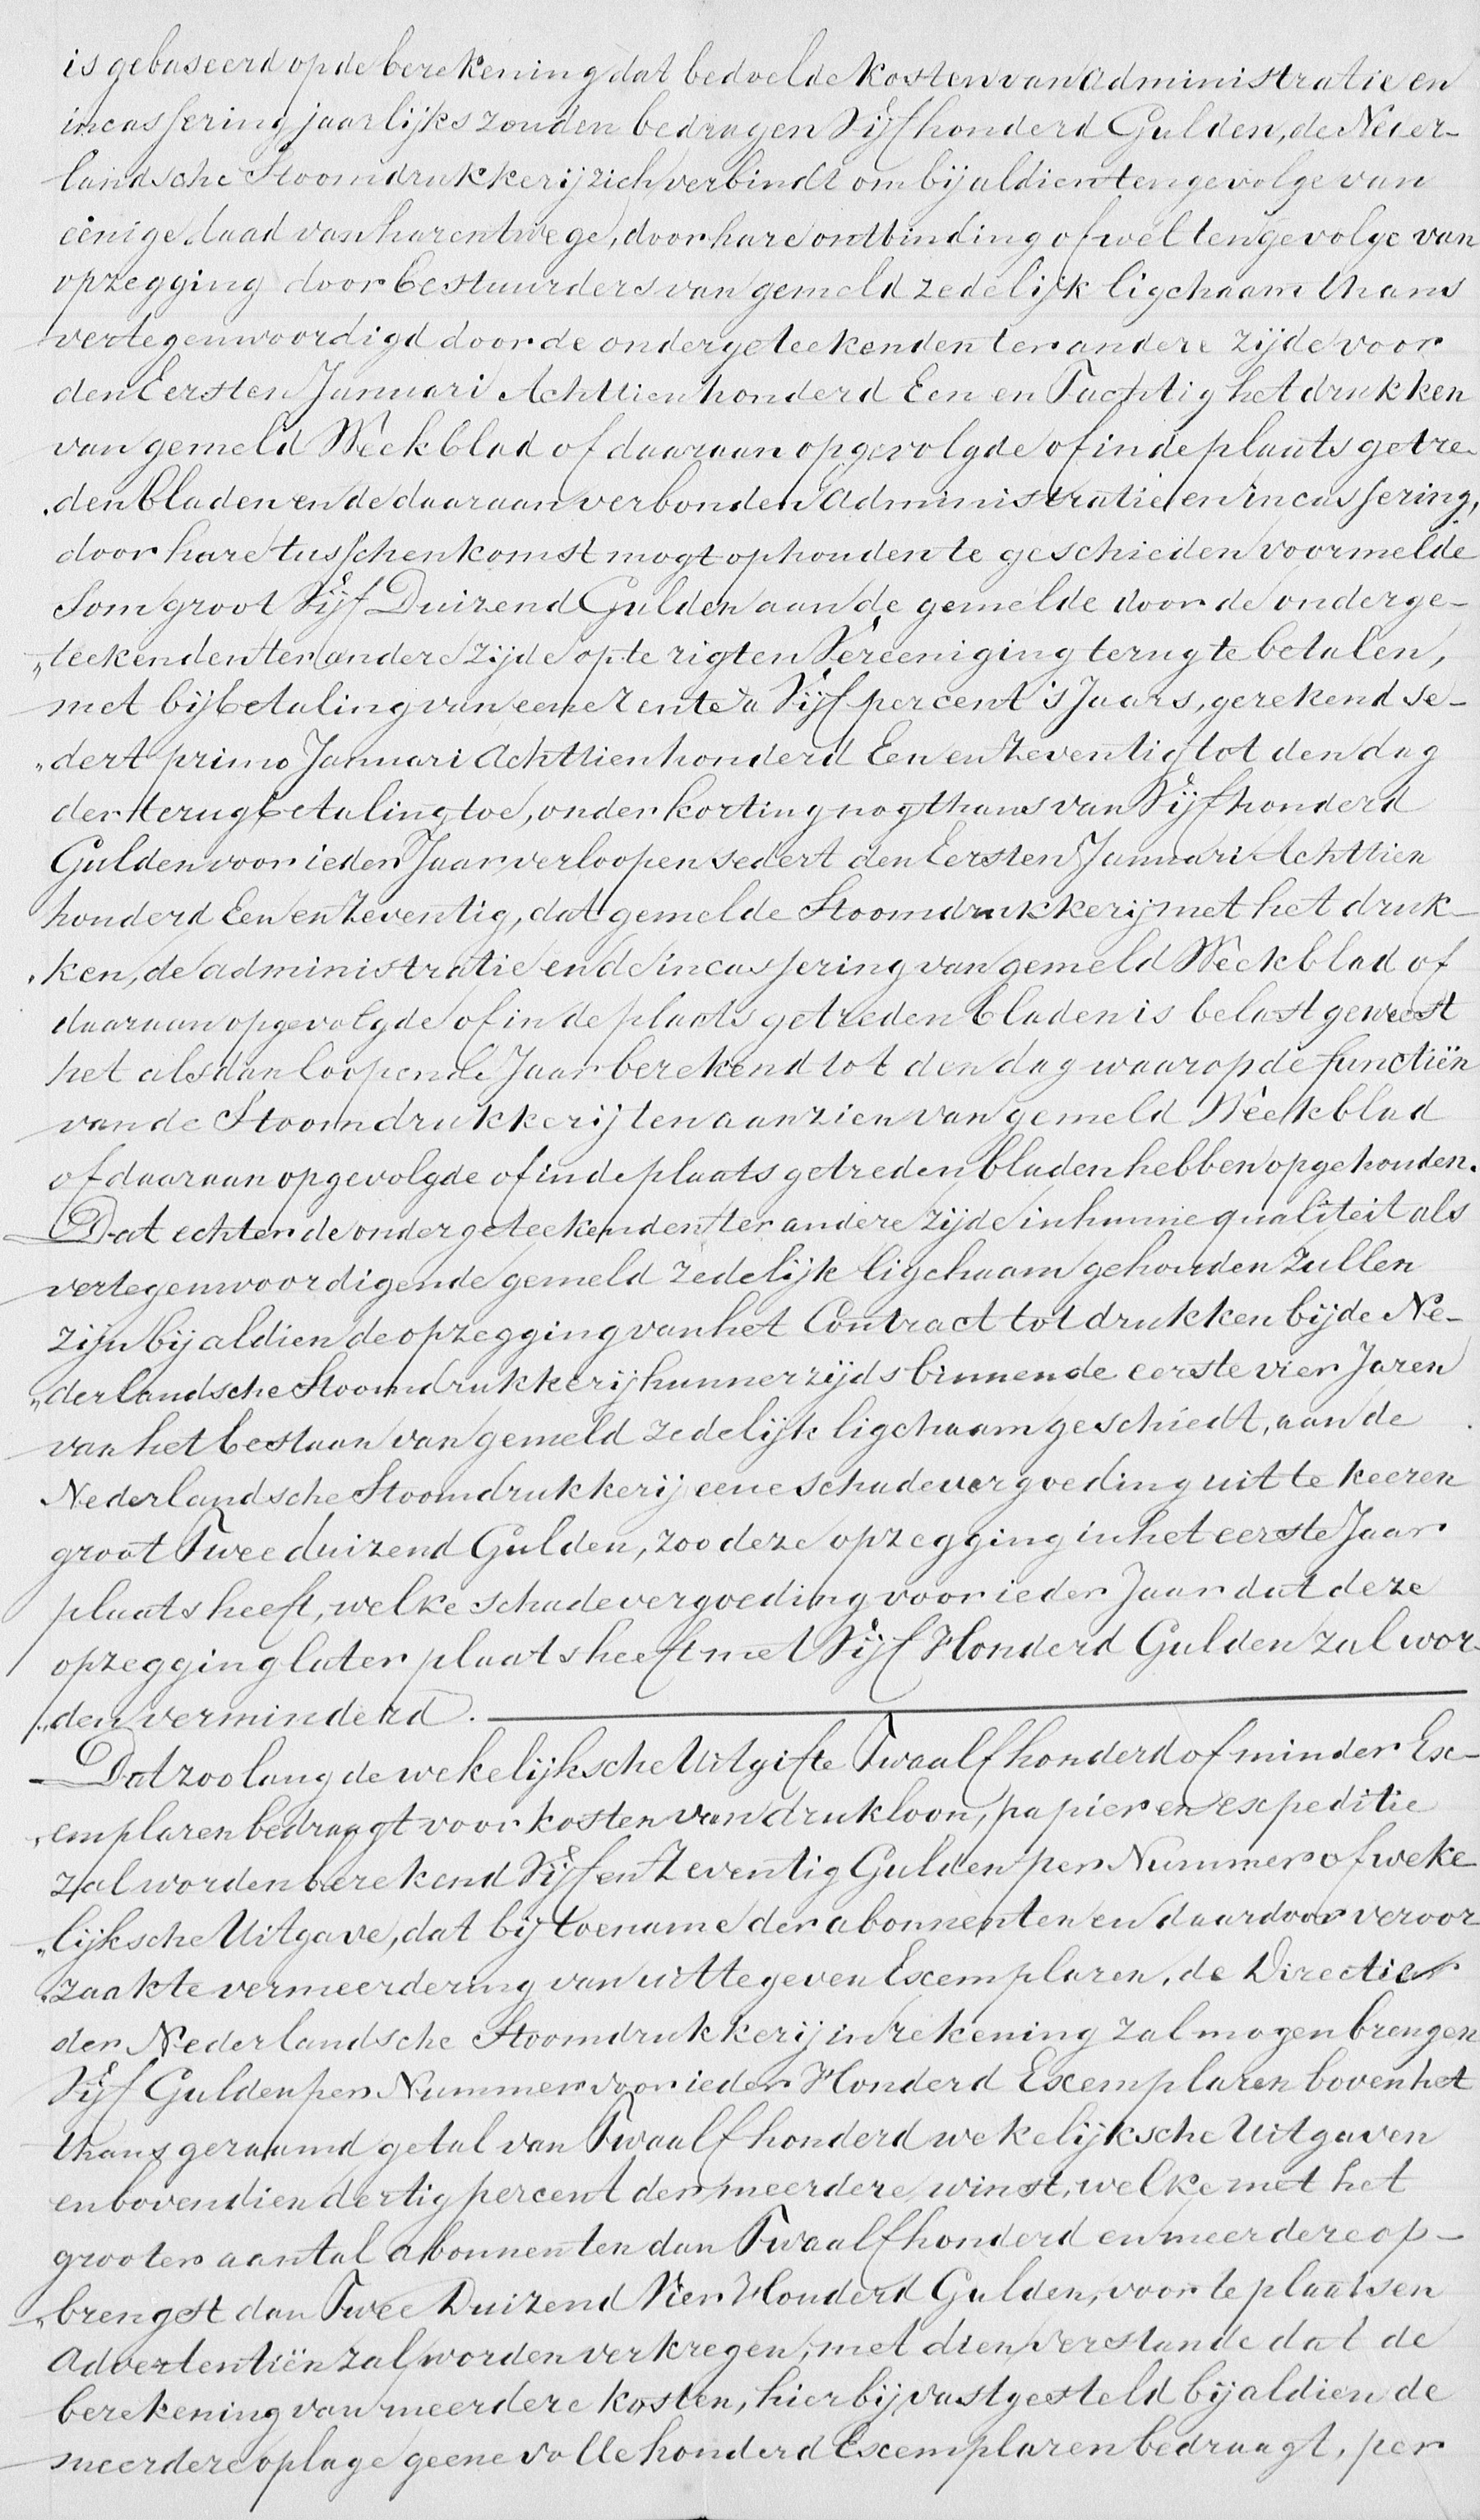 is gebaseerd op de berekening dat bedoelde kosten van administratie en
incassering jaarlijks zouden bedragen Vijfhonderd Gulden, de Neder-
landsche Stoomdrukkerij zich verbindt om bijaldien tengevolge van
eenige daad van harentwege, door hare ontbinding of wel tengevolge van
opzegging door bestuurders van gemeld zedelijk ligchaam thans
vertegenwoordigd door de ondergeteekenden ter andere zijde voor
den Eersten Januari Achttienhonderd Een en Tachtig het drukken
van gemeld Weekblad of daaraan opgevolgde of in de plaats getre-
„den bladen en de daaraan verbonden administratie en incassering,
door hare tusschenkomst mogt ophouden te geschieden voormelde
Som groot Vijf Duizend Gulden aan de gemelde door de onderge-
„teekenden ter andere zijde op te rigten Vereeniging terug te betalen,
met bijbetaling van eene rente à Vijf percent 's Jaars, gerekend se-
„dert primo Januari Achttienhonderd Een en Zeventig tot den dag
der terugbetaling toe, onder korting nogthans van Vijfhonderd
Gulden voor ieder Jaar verloopen sedert den Eersten Januari Achttien
honderd Een en Zeventig, dat gemelde Stoomdrukkerij met het druk-
„ken, de administratie en de incassering van gemeld Weekblad of
daaraan opgevolgde of in de plaats getreden bladen is belast geweest
het alsdan loopende Jaar berekend tot den dag waarop de functiën
van de Stoomdrukkerij ten aanzien van gemeld Weekblad
of daaraan opgevolgde of in de plaats getreden bladen hebben opgehouden.
Dat echter de ondergeteekenden ter andere zijde in hunne qualiteit als
vertegenwoordigende gemeld zedelijk ligchaam gehouden zullen
zijn bij aldien de opzegging van het Contract tot drukken bij de Ne-
„derlandsche Stoomdrukkerij hunnerzijds binnen de eerste vier Jaren
van het bestaan van gemeld zedelijk ligchaam geschiedt, aan de
Nederlandsche Stoomdrukkerij eene schadevergoeding uit te keeren
groot Twee duizend Gulden, zoo deze opzegging in het eerste Jaar
plaats heeft, welke schadevergoeding voor ieder Jaar dat deze
opzegging later plaats heeft met Vijf Honderd Gulden zal wor-
„den verminderd.
Dat zoolang de wekelijksche Uitgifte Twaalf honderd of minder Ex-
„emplaren bedraagt voor kosten van drukloon, papier en expeditie
zal worden berekend Vijf en Zeventig Gulden per Nummer of weke
„lijksche Uitgave, dat bij toename der abonnenten en daardoor veroor
„zaakte vermeerdering van uittegeven Exemplaren, de Directie
der Nederlandsche Stoomdrukkerij in rekening zal mogen brengen
Vijf Gulden per Nummer voor ieder Honderd Exemplaren boven het
thans geraamd getal van Twaalf honderd wekelijksche Uitgaven
en bovendien dertig percent der meerdere winst, welke met het
grooter aantal abonnenten dan Twaalf honderd en meerdere op-
„brengst dan Twee Duizend Vier Honderd Gulden, voor te plaatsen
Advertentiën zal worden verkregen, met dien verstande dat de
berekening van meerdere kosten, hierbij vastgesteld bijaldien de
meerdere oplage geene volle honderd Exemplaren bedraagt, per